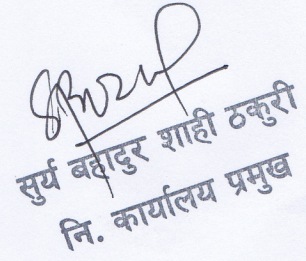 सुर्य बहादुर शाही ठकुरी
नि. कार्यालय प्रमुख